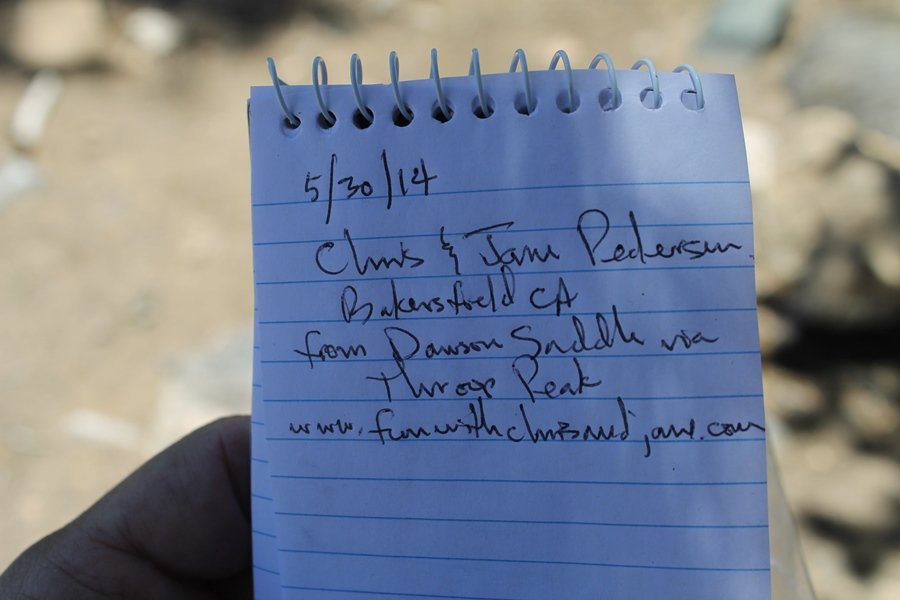 5/30/14
Chris & Jane Pedersen
Bakersfield CA
from Dawson Saddle via
Throop Peak
www.funwithchrisandjane.com